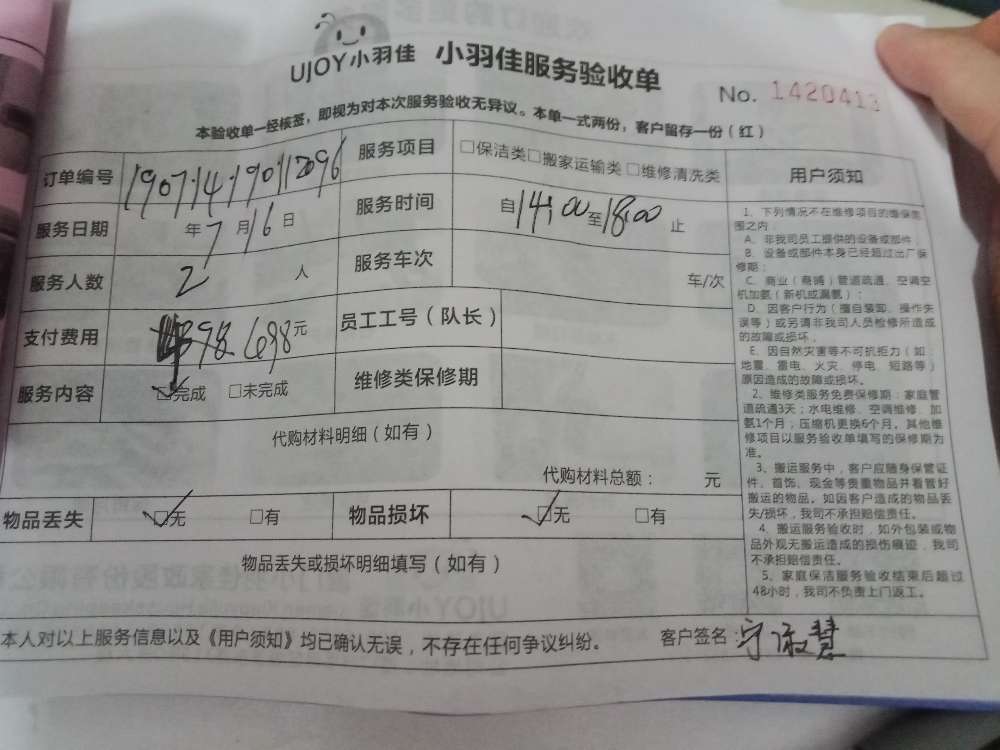 UJOY小羽佳 小羽佳服务验收单
No. 1420413
本验收单一经核签，即视为对本次服务验收无异议。本单一式两份，客户留存一份（红）
订单编号 190714190112096 服务项目 □保洁类□搬家运输类□维修清洗类
服务日期 年7月16日 服务时间 自14:00至18:00止
服务人数 2人 服务车次 车/次
支付费用 698元 员工工号（队长）
服务内容 ☑完成 □未完成 维修类保修期
代购材料明细（如有）
代购材料总额： 元
物品丢失 ☑无 □有 物品损坏 ☑无 □有
物品丢失或损坏明细填写（如有）
本人对以上服务信息以及《用户须知》均已确认无误，不存在任何争议纠纷。 客户签名：
用户须知
1、下列情况不在维修项目的维保范
围之内：
A、非我司员工提供的设备或部件；
B、设备或部件本身已经超过出厂保
修期；
C、商业（商铺）管道疏通、空调空
机加氨（新机或漏氨）；
D、因客户行为（擅自装卸、操作失
误等）或另请非我司人员检修所造成
的故障或损坏；
E、因自然灾害等不可抗拒力（如：
地震、雷电、火灾、停电、短路等）
原因造成的故障或损坏。
2、维修类服务免费保修期：家庭管
道疏通3天；水电维修、空调维修、加
氨1个月；压缩机更换6个月。其他维
修项目以服务验收单填写的保修期为
准。
3、搬运服务中，客户应随身保管证
件、首饰、现金等贵重物品并看管好
搬运的物品。如因客户造成的物品丢
失/损坏，我司不承担赔偿责任。
4、搬运服务验收时，如外包装或物
品外观无搬运造成的损伤痕迹，我司
不承担赔偿责任。
5、家庭保洁服务验收结束后超过
48小时，我司不负责上门返工。